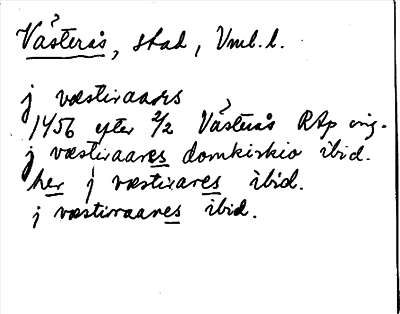 Västerås, stad, Vml. l.
j væstiraares
1456 efter 2/2 Västerås RAp orig.
j væstiraares domkirkio ibid.
her j væstirares ibid.
j væstiraares ibid.